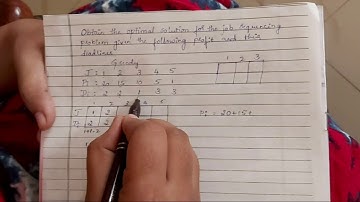 Obtain the optimal solution for the job sequencing
problem given the following profits and their
deadlines.
Greedy
J : 1 2 3 4 5
Pi : 20 15 10 5 1
Di : 2 2 1 3 3
1 2 3 4 5
J 1 2
Di 2 2
1 2 3
Pi = 20+15+